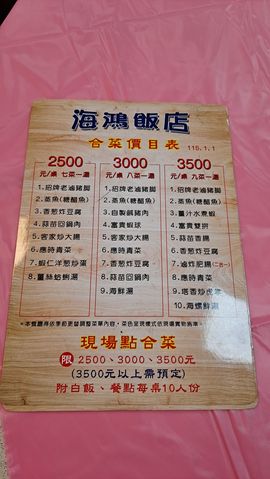 海鴻飯店
合菜價目表 115.1.1
2500
元/桌 七菜一湯
1.招牌老滷豬腳
2.蒸魚(糖醋魚)
3.香煎炸豆腐
4.蒜苗回鍋肉
5.客家炒大腸
6.應時青菜
7.蝦仁洋蔥炒蛋
8.薑絲蛤蜊湯
3000
元/桌 八菜一湯
1.招牌老滷豬腳
2.蒸魚(糖醋魚)
3.自製鹹豬肉
4.富貴蝦球
5.客家炒大腸
6.應時青菜
7.香煎炸豆腐
8.蒜苗回鍋肉
9.海鮮湯
3500
元/桌 九菜一湯
1.招牌老滷豬腳
2.蒸魚(糖醋魚)
3.薑汁水煮蝦
4.富貴雙拼
5.蒜苗香腸
6.香煎炸豆腐
7.滷炸肥腸(二合一)
8.應時青菜
9.塔香炒
10.海螺鮮湯
現場點合菜
限 2500、3000、3500元
(3500元以上需預定)
附白飯、餐點每桌10人份